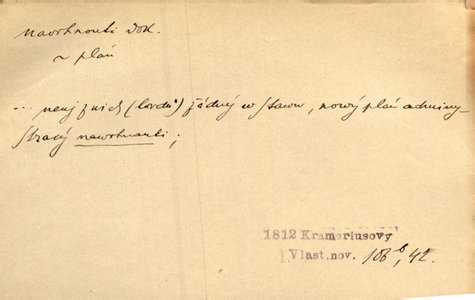 navrhnouti dok.
~ plán
... nenj z nich (lordů) žádný w stawu, nowý plán adminy-
stracý nawrhnauti;
1812 Krameriusovy
Vlast. nov. 106 b, 42.